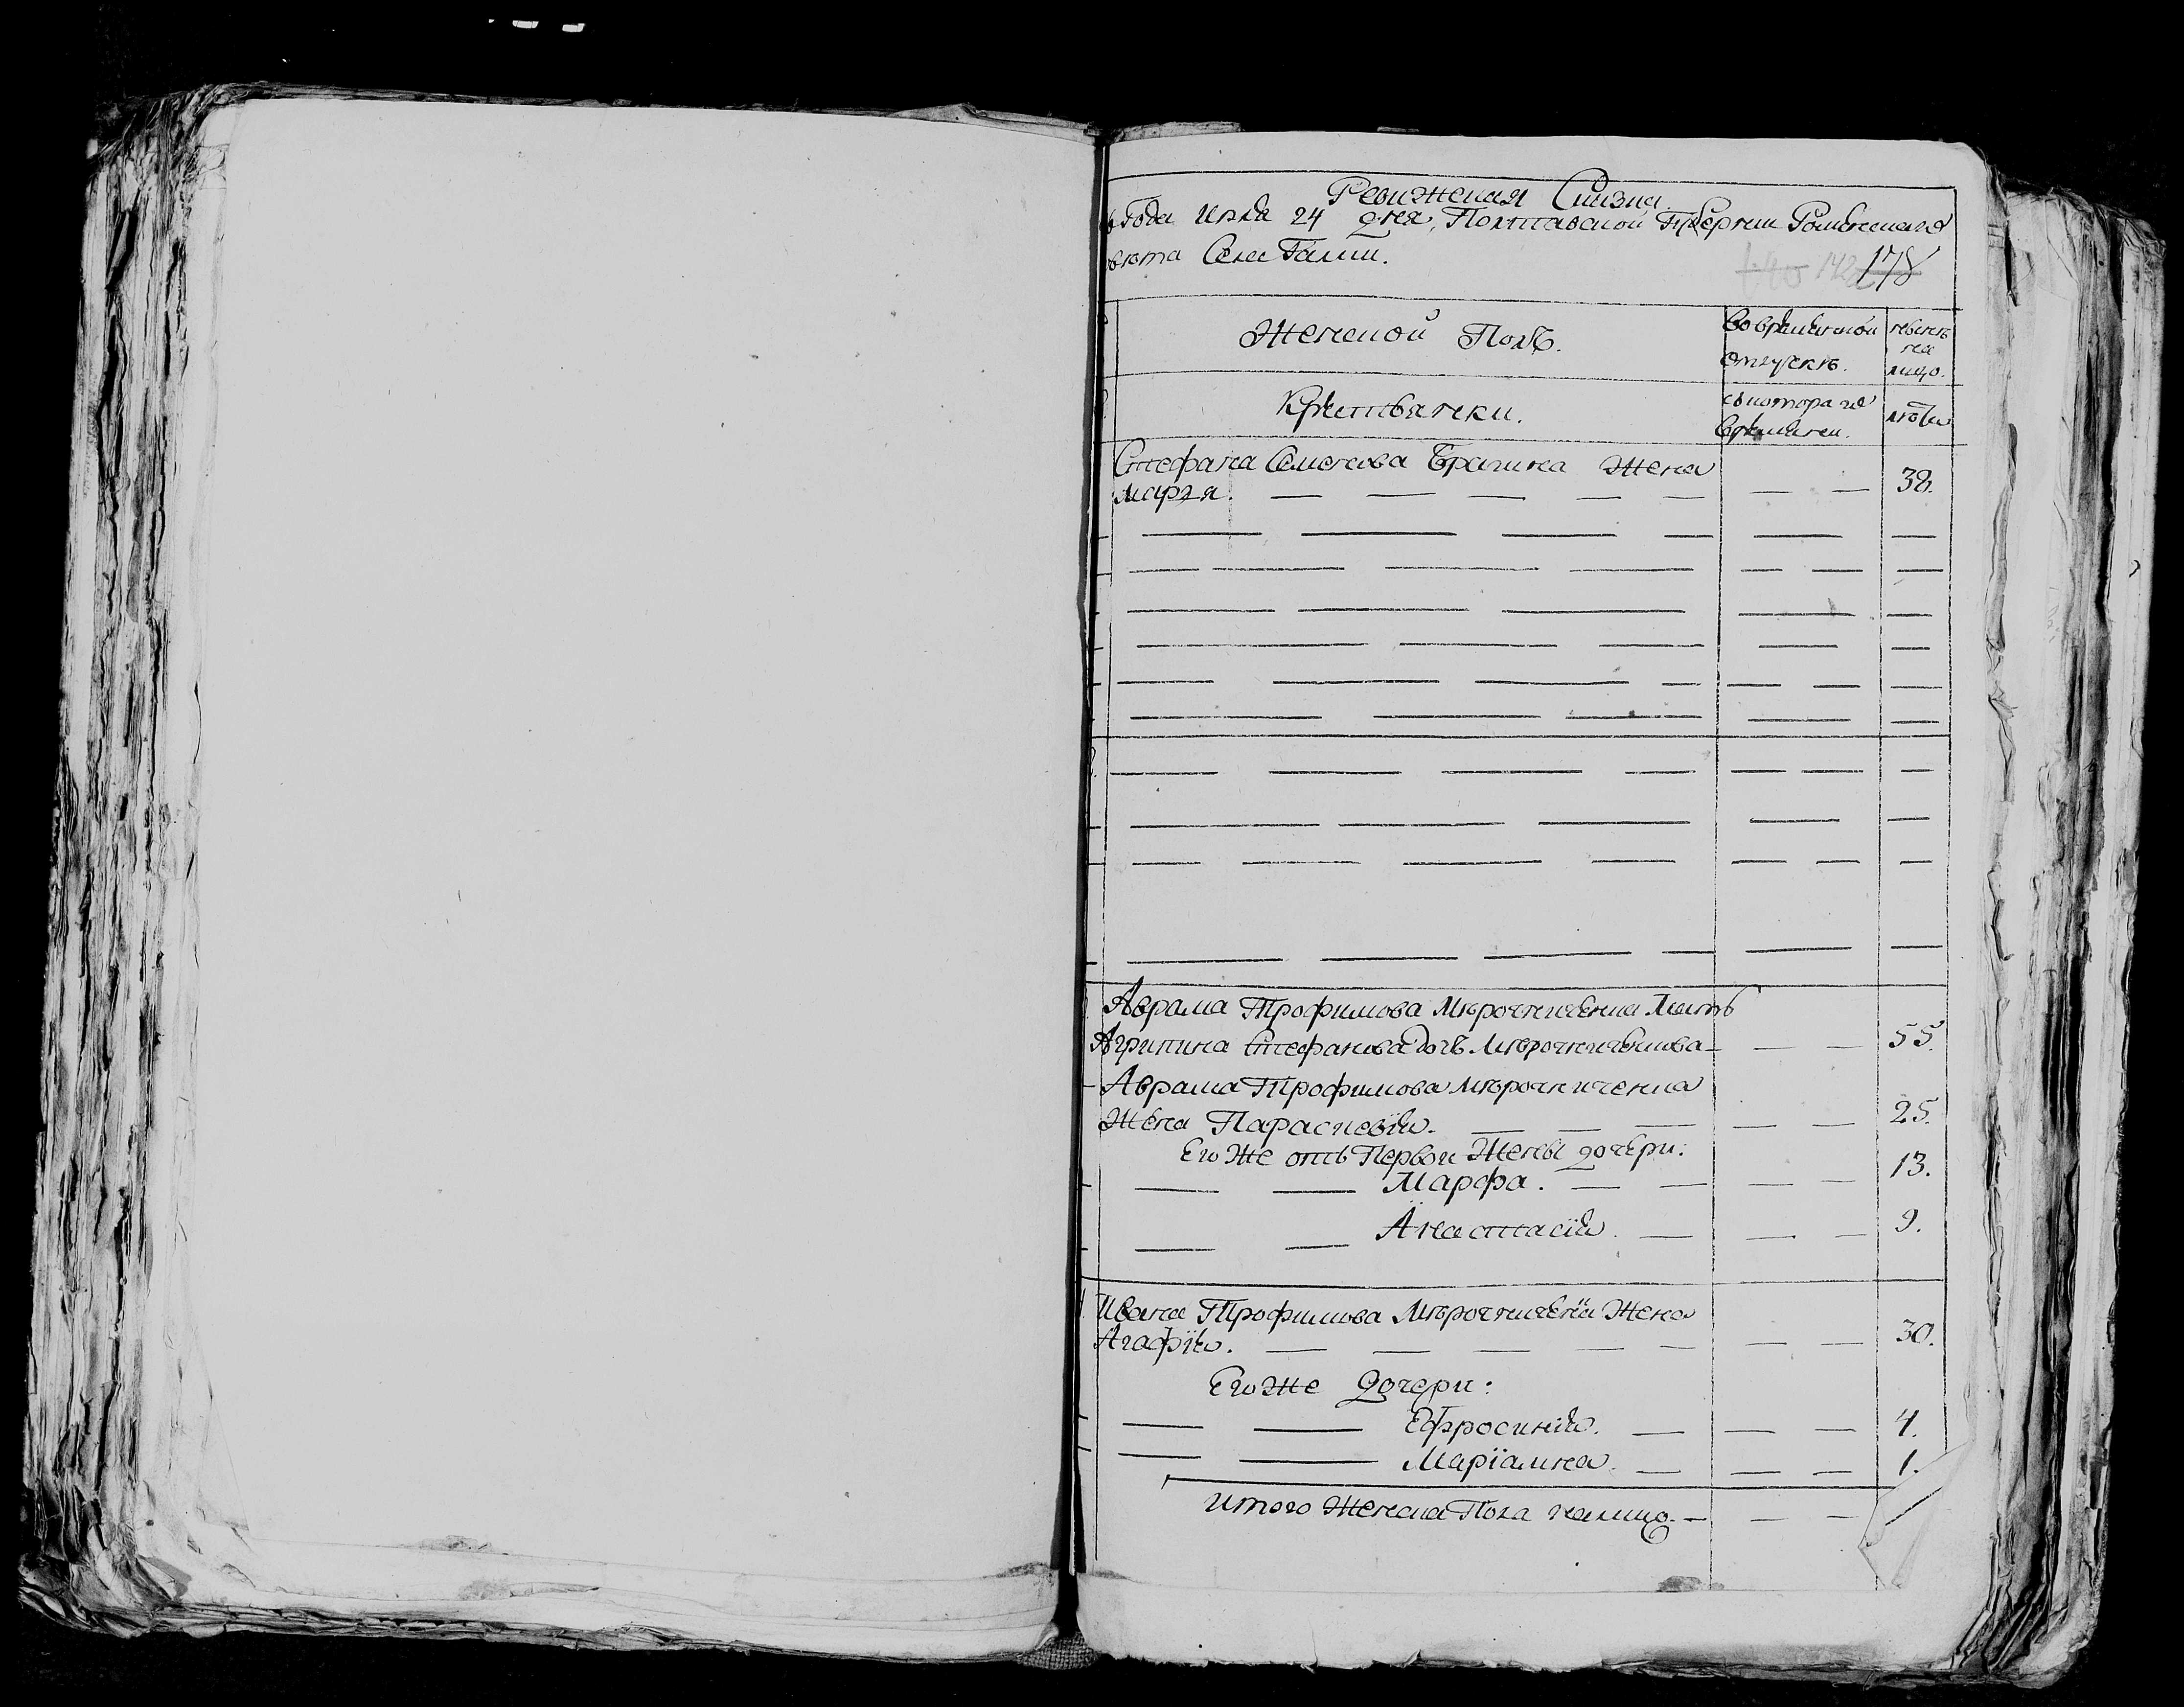 Ревижская Сказка
Года Июля 24 дня, Полтавской Губернии Роменскаго
вета Села Галки.
178
Женской Полъ.
Во временной
отлучкѣ.
Крестьянки.
съ котораго
времени.
лѣта
Стефана Семенова Брагина Жена
Марья. — — — — — — — 38.
Аврама Трофимова Мѣрочниченка Мать
Агрипина Стефанова дочь Мѣрочниченкова — — — 55.
Аврама Трофимова Мѣрочниченка
Жена Параскевiя. — — — — — 25.
Его же отъ Первой Жены дочери:
— — Марфа. — — — — 13.
— — Анастасiя. — — — 9.
Ивана Трофимова Мѣрочниченка Жена
Агафiя. — — — — — — — 30.
Его же Дочери:
— — Ефросинiя. — — — 4.
— — Марiамна. — — — 1.
Итого Женска Пола налицо. — — —